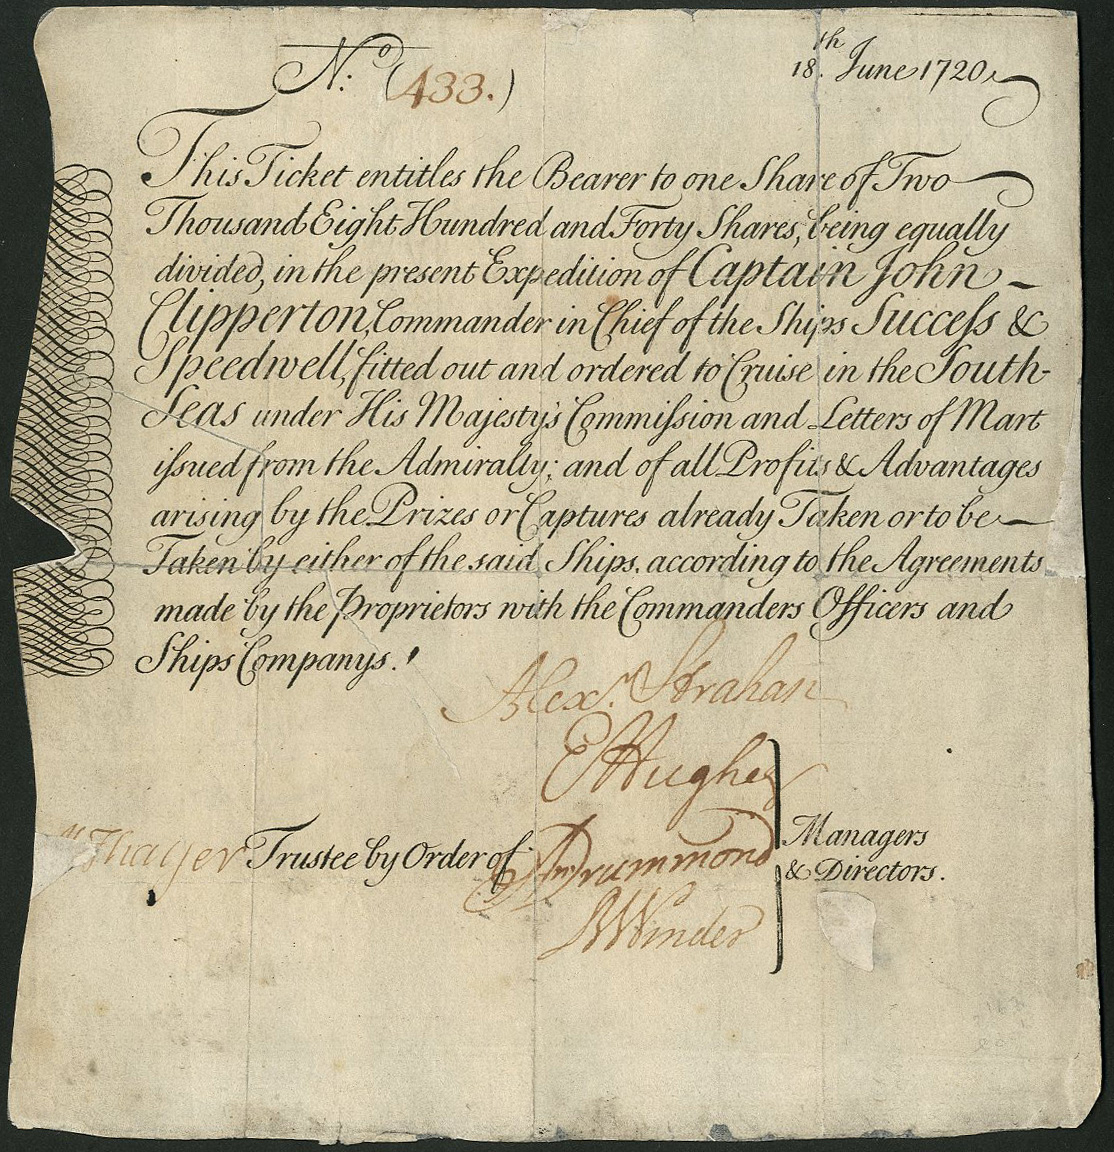 No: (433.)
18th. June 1720
This Ticket entitles the Bearer to one Share of Two
Thousand Eight Hundred and Forty Shares, being equally
divided, in the present Expedition of Captain John
Clipperton, Commander in Chief of the Ships Success &
Speedwell, fitted out and ordered to Cruise in the South-
Seas under His Majesty's Commission and Letters of Mart
issued from the Admiralty; and of all Profits & Advantages
arising by the Prizes or Captures already Taken or to be
Taken by either of the said Ships, according to the Agreements
made by the Proprietors with the Commanders Officers and
Ships Companys.
Alexr. Strahan
E Hughes
Thayer Trustee by Order of
Drummond
Winder
Managers
& Directors.